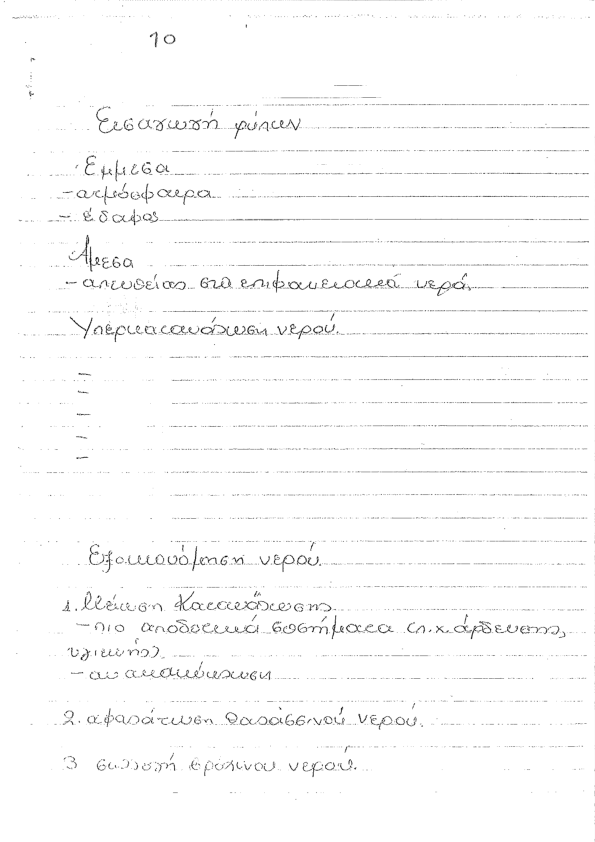 10
Εισαγωγή ρύπων
Έμμεσα
- ατμόσφαιρα
- έδαφος
Άμεσα
- απευθείας στα επιφανειακά νερά.
Υπερκατανάλωση νερού.
-
-
-
-
-
Εξοικονόμηση νερού.
1. Μείωση Κατανάλωσης
- πιο αποδοτικά συστήματα (π.χ. άρδευσης,
υγιεινής)
- ανακύκλωση
2. αφαλάτωση θαλάσσινού νερού.
3 συλλογή βρόχινου νερού.